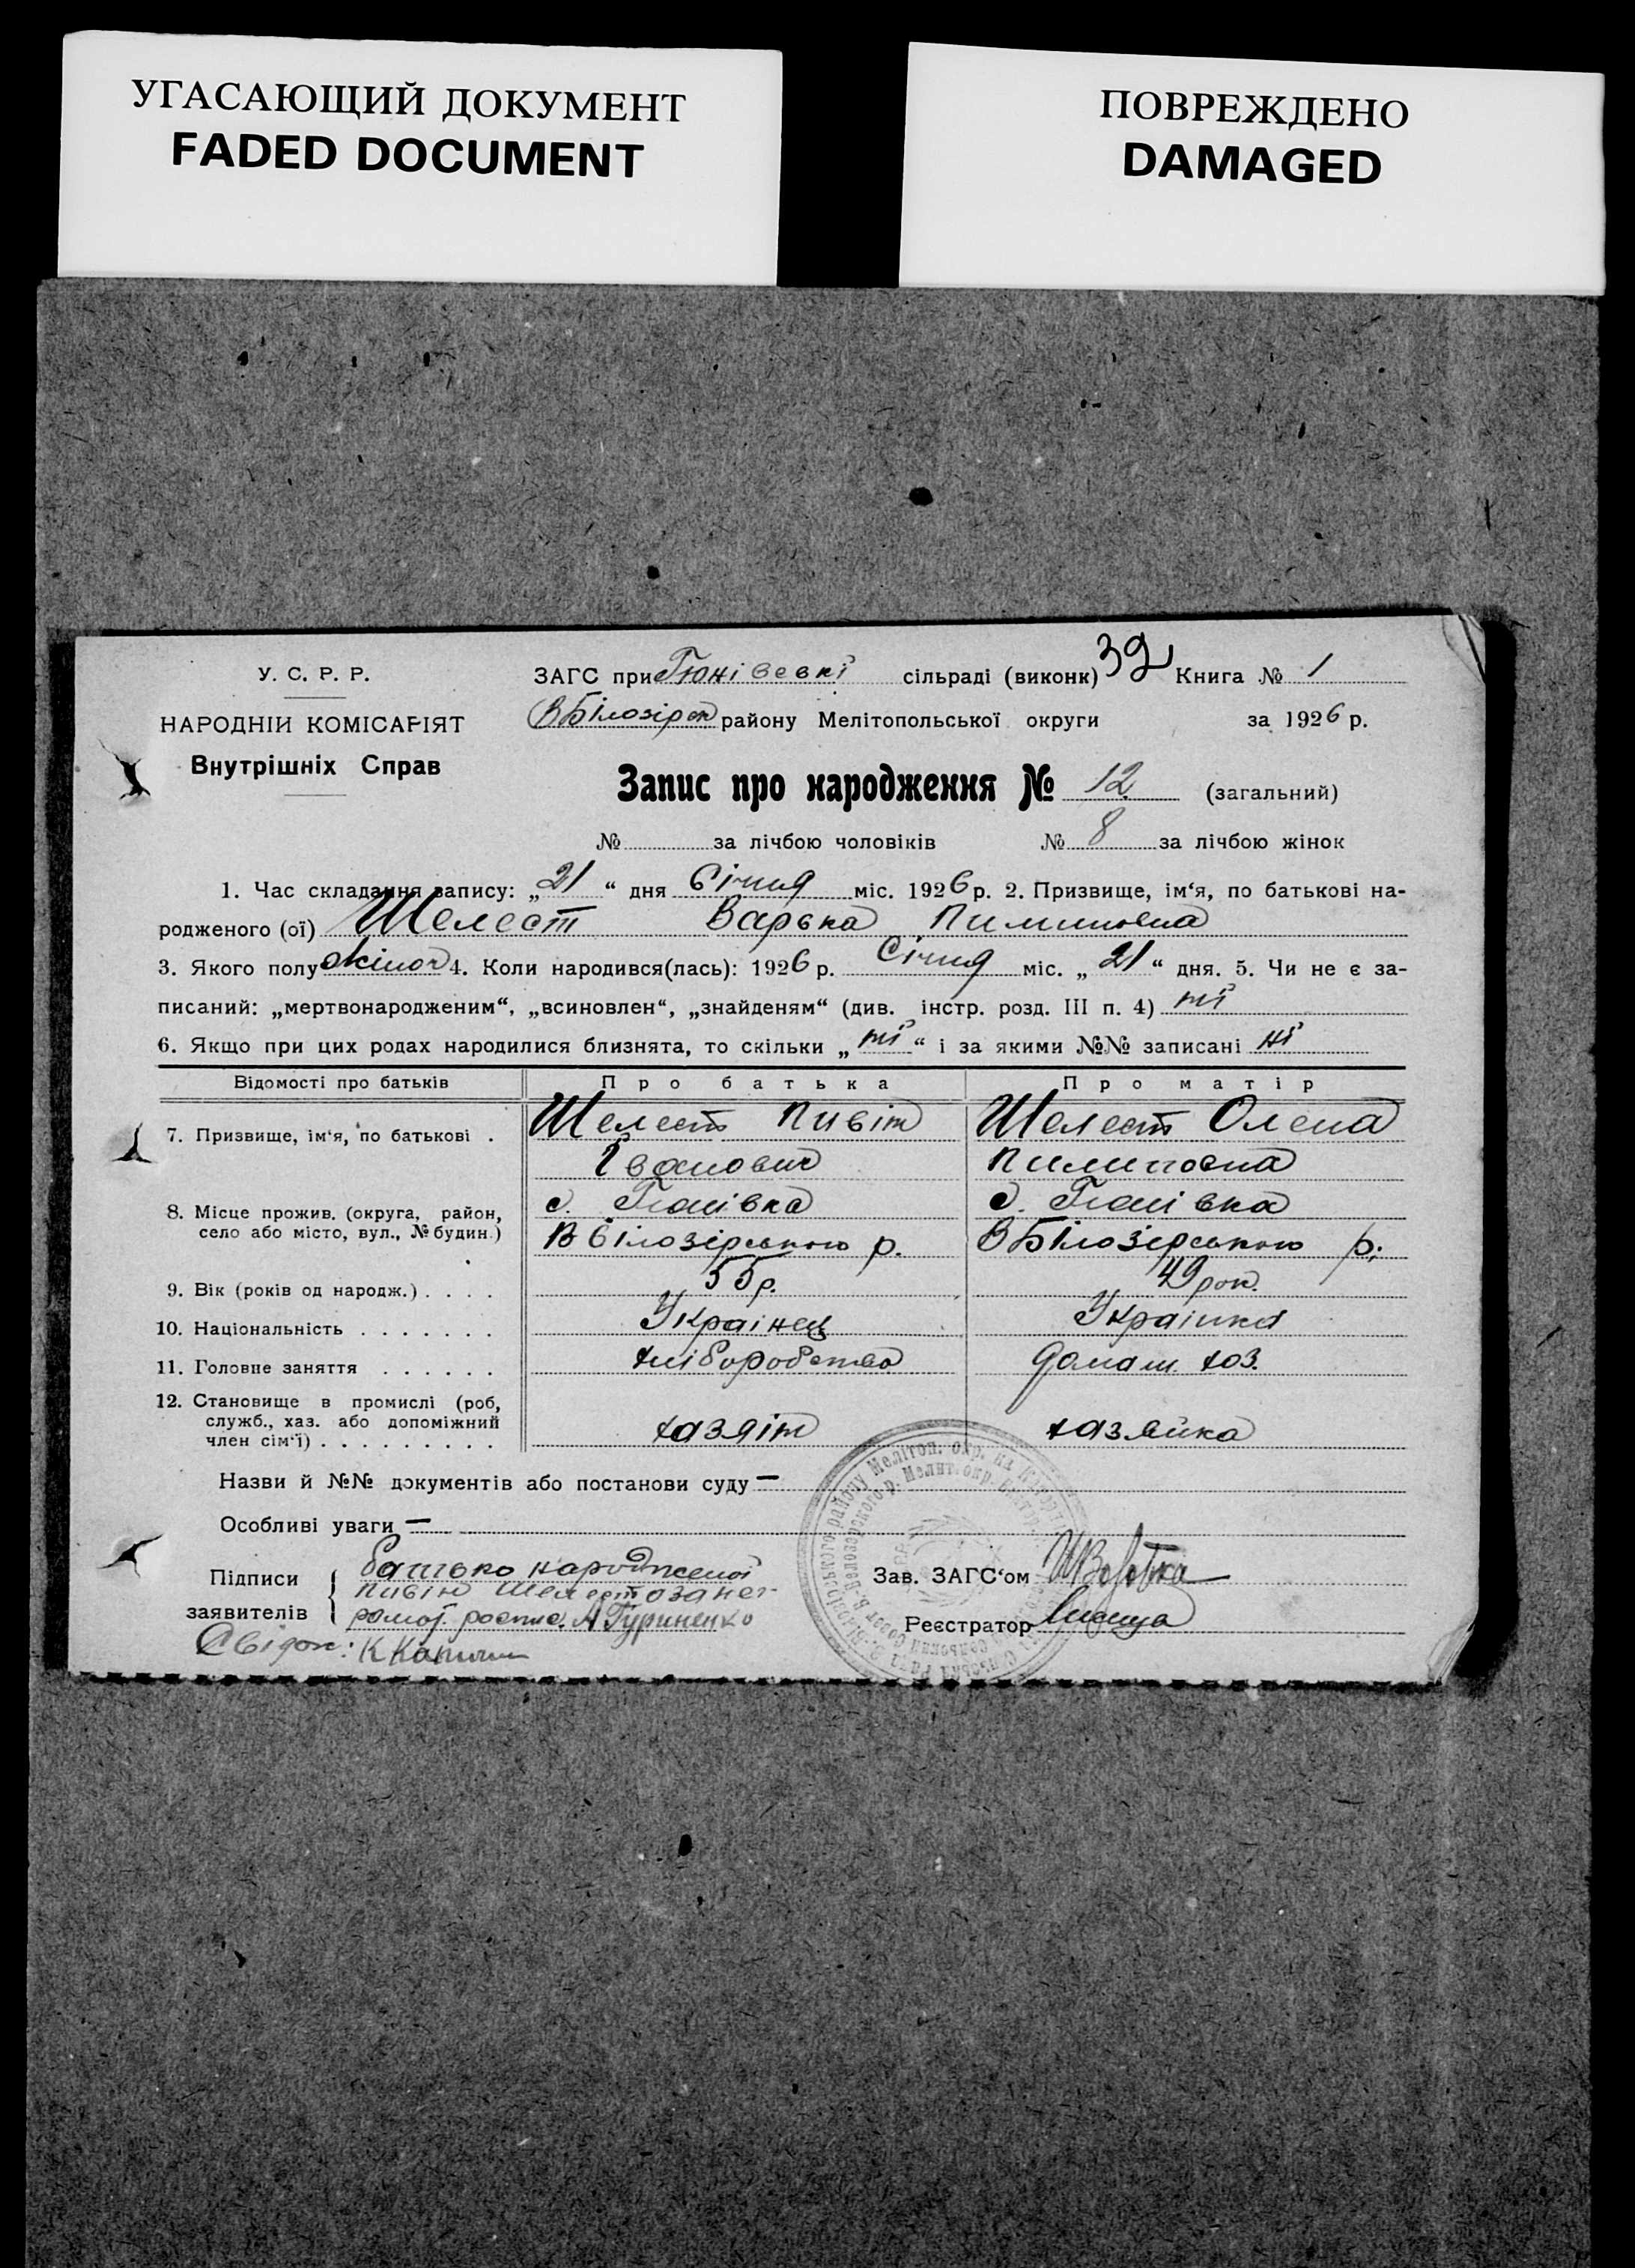 УГАСАЮЩИЙ ДОКУМЕНТ
FADED DOCUMENT
ПОВРЕЖДЕНО
DAMAGED
У. С. Р. Р.
НАРОДНІЙ КОМІСАРІЯТ
Внутрішніх Справ
ЗАГС при Гюнівськ сільраді (виконк) 39 Книга № 1
В Білозірськ району Мелітопольської округи за 1926 р.
Запис про народження № 12 (загальний)
№ за лічбою чоловіків № 8 за лічбою жінок
1. Час складання запису: „21“ дня Січня міс. 1926 р. 2. Призвище, ім‘я, по батькові на-
родженого (ої) Шелест Варька
3. Якого полу жіноч 4. Коли народився(лась): 1926 р. Січня міс. „21“ дня. 5. Чи не є за-
писаний: „мертвонародженим“, „всиновлен“, „знайденям“ (див. інстр. розд. III п. 4) ні
6. Якщо при цих родах народилися близнята, то скільки „ні“ і за якими №№ записані ні
Відомості про батьків Про батька Про матір
7. Призвище, ім‘я, по батькові . Шелест Шелест Олена
Іванович Пилиповна
8. Місце прожив. (округа, район, с. Гюнівка с. Гюнівка
село або місто, вул., № будин.) В Білозірського р. В Білозірського р.
9. Вік (років од народж.) . . . . 55 р. 49 рок.
10. Національність . . . . . . . Українец Українка
11. Головне заняття . . . . . . хліборобство домаш. хоз.
12. Становище в промислі (роб,
служб., хаз. або допоміжний
член сім‘ї) . . . . . . . . . хазяін хазяйка
Назви й №№ документів або постанови суду —
Особливі уваги —
Підписи
заявителів
батько народженої
Шелест а за нег
рамот. роспис. А Гуриненко
Свідок: К
Зав. ЗАГС‘ом
Реєстратор